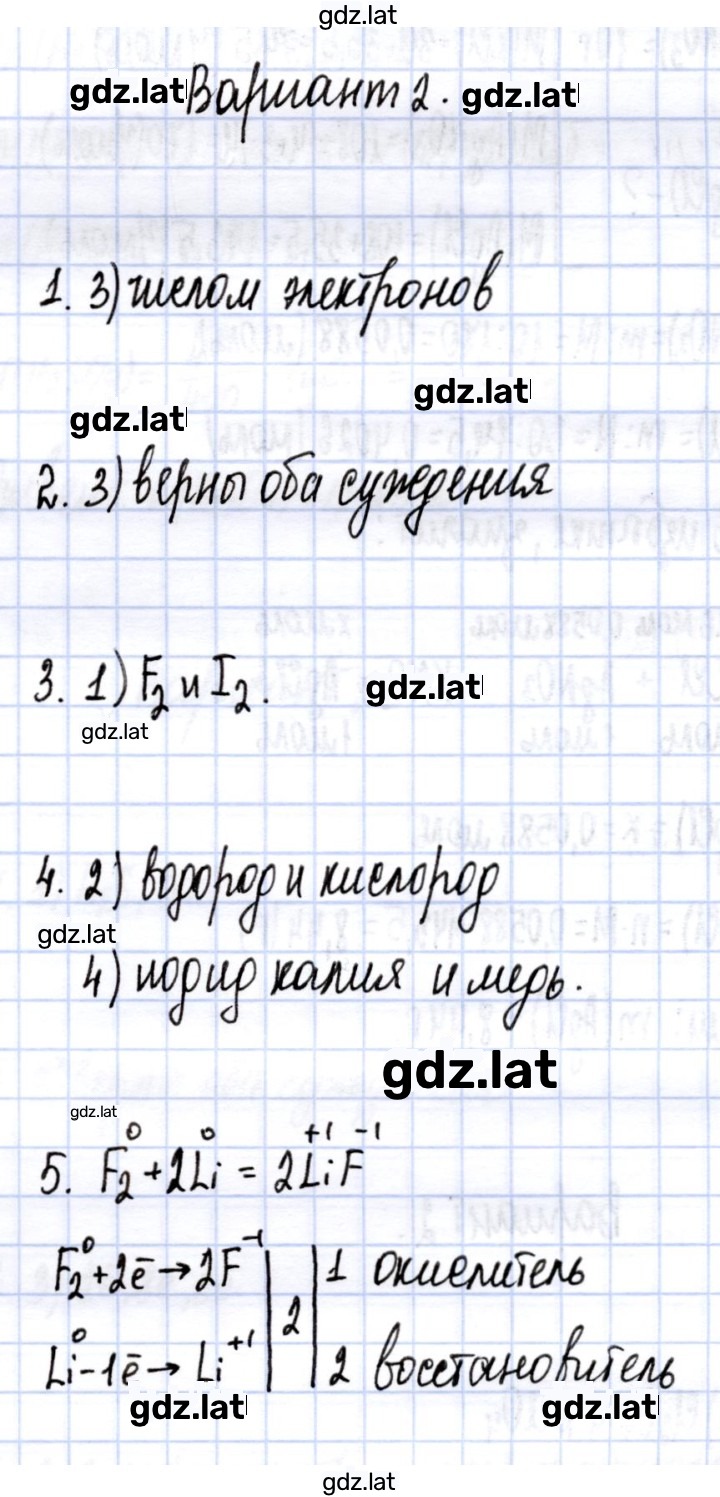 gdz.lat
gdz.lat Вариант 2. gdz.lat
1. 3) числом электронов
gdz.lat
gdz.lat
2. 3) верны оба суждения
3. 1) F₂ и I₂. gdz.lat
gdz.lat
4. 2) водород и кислород
gdz.lat
4) иодид калия и медь.
gdz.lat
gdz.lat
0 0 +1 -1
5. F₂ + 2Li = 2LiF
F₂⁰ + 2ē → 2F⁻¹ | 2 | 1 окислитель
Li⁰ - 1ē → Li⁺¹ | | 2 восстановитель
gdz.lat gdz.lat
gdz.lat